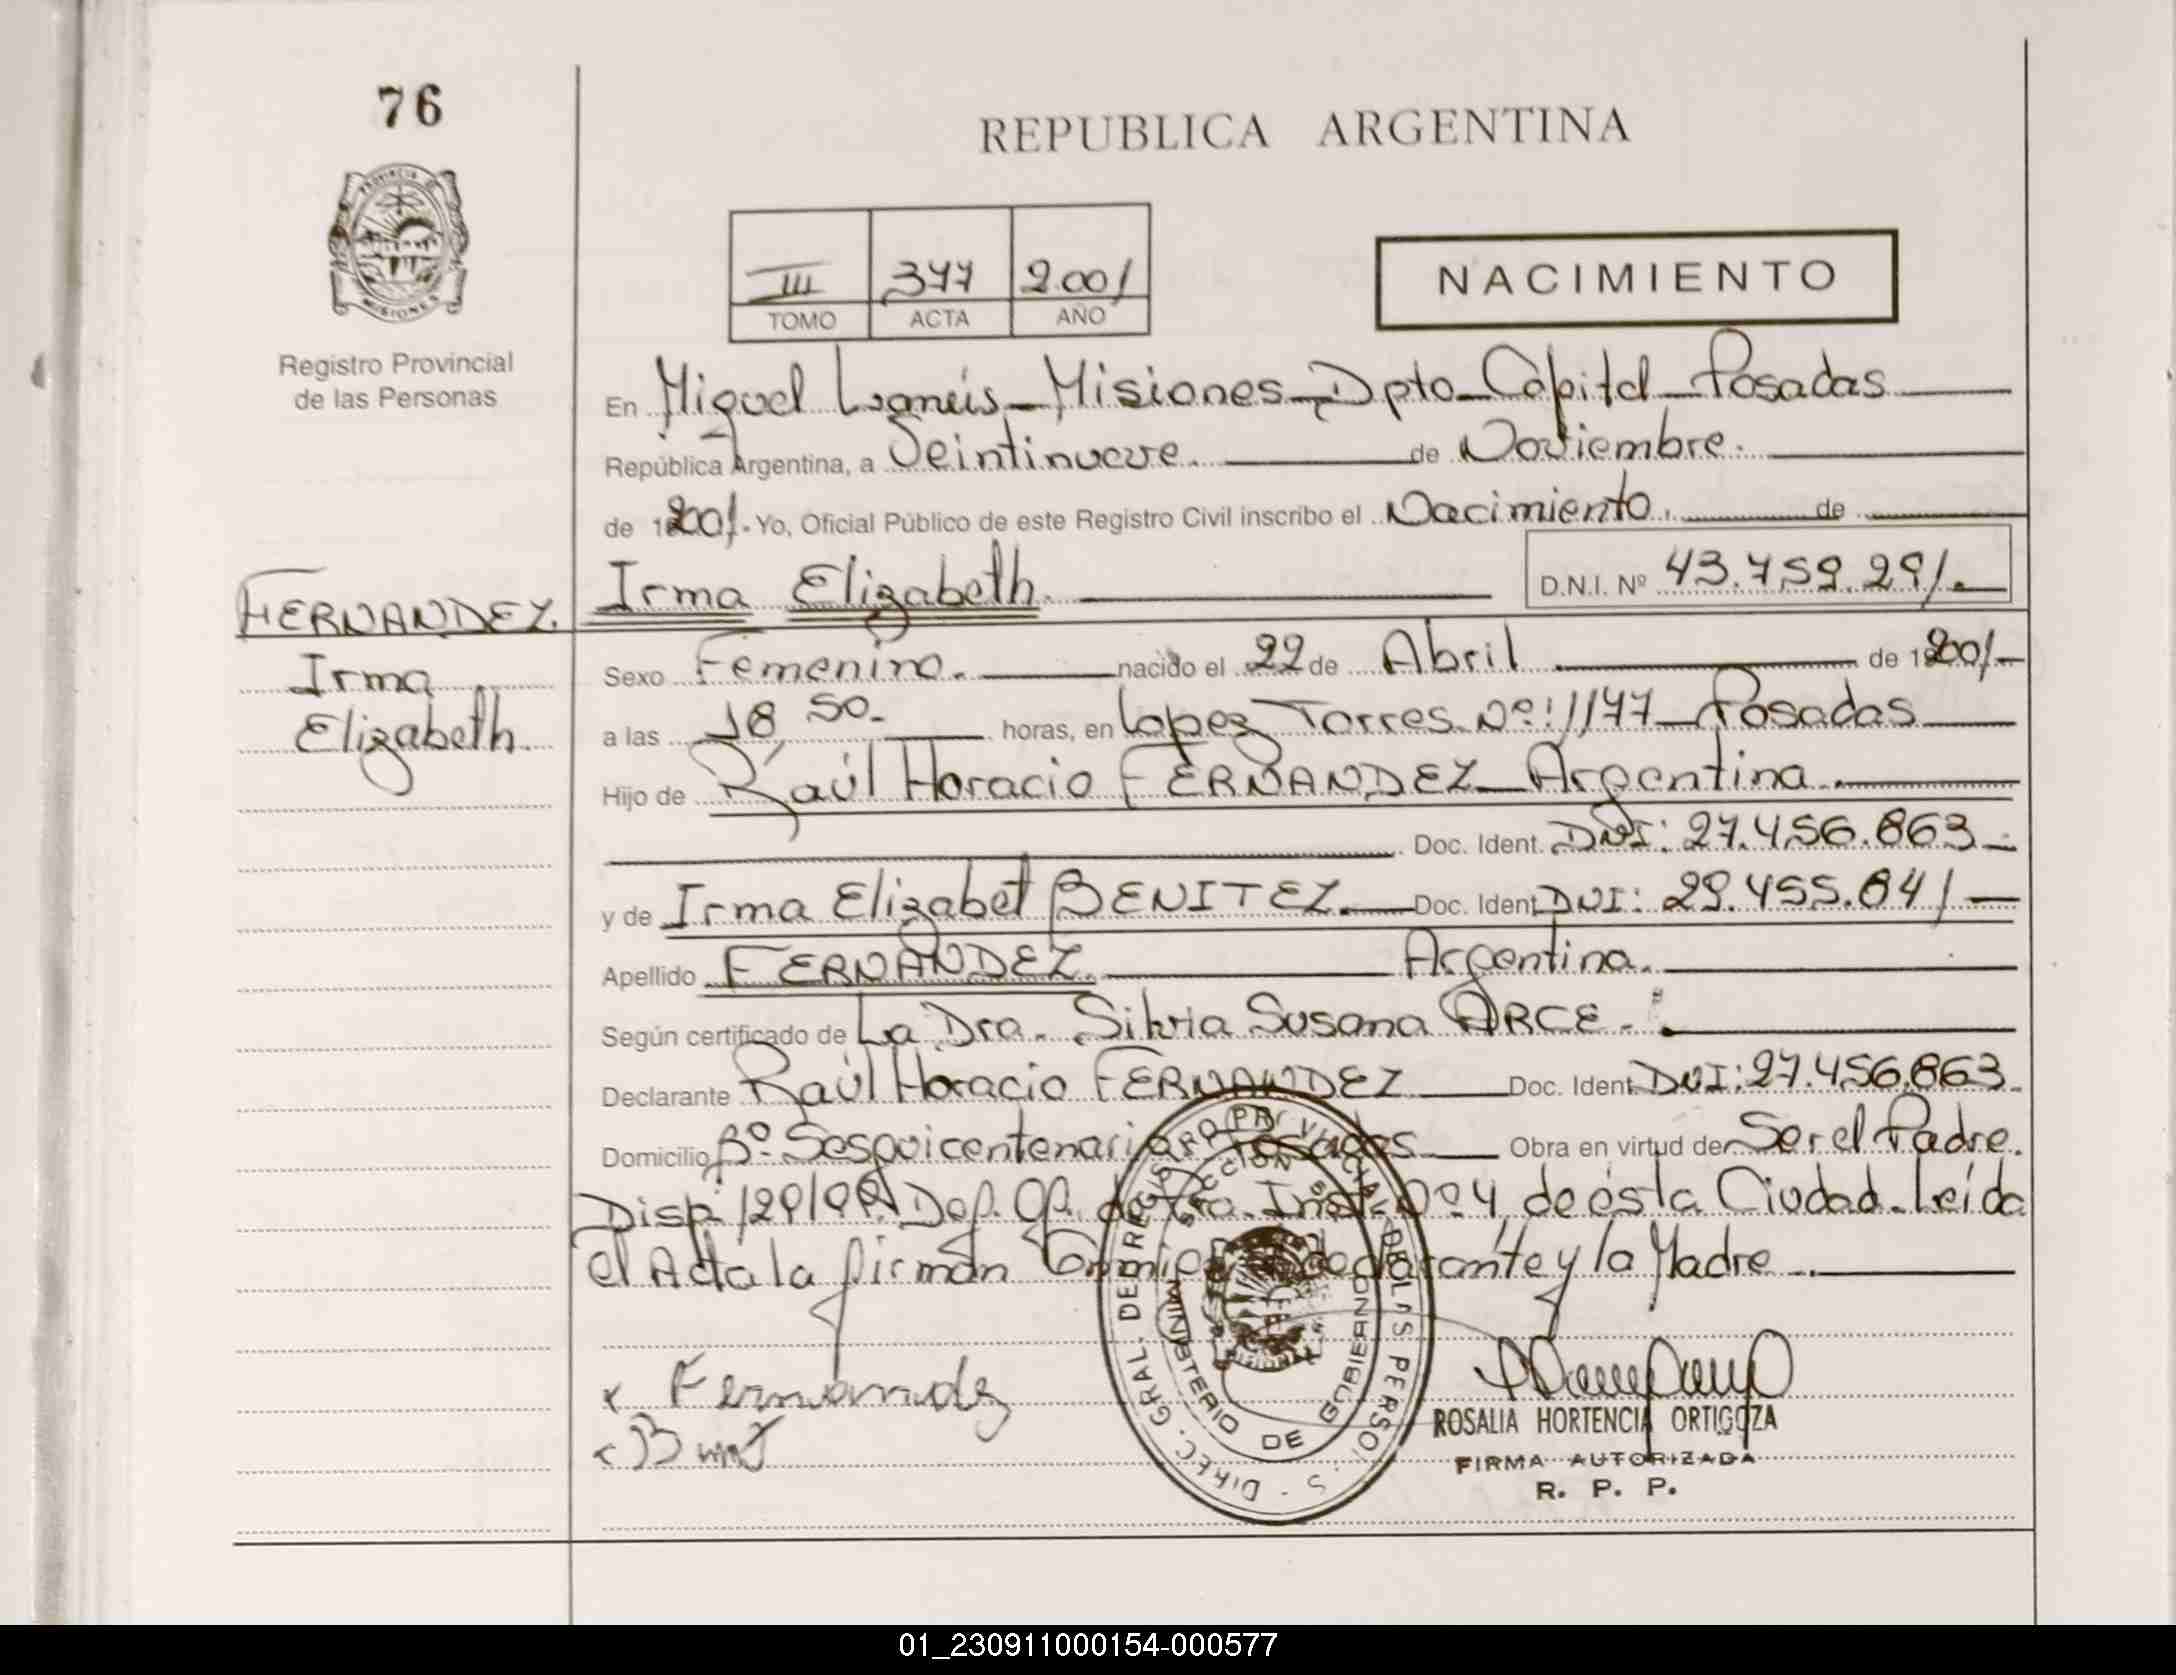 76
REPUBLICA ARGENTINA
III 377 2.001
TOMO ACTA AÑO
NACIMIENTO
PROVINCIA DE MISIONES
Registro Provincial
de las Personas
En Miguel Lanús_Misiones_Dpto_Capital_Posadas
República Argentina, a Veintinueve. de Noviembre.
de 2001. Yo, Oficial Público de este Registro Civil inscribo el Nacimiento. de
FERNANDEZ Irma Elizabeth. D.N.I. Nº 43.759.291.
Irma
Elizabeth.
Sexo Femenino. nacido el 22 de Abril de 2001
a las 18 50. horas, en Lopez Torres Nº: 1177_Posadas
Hijo de Raúl Horacio FERNANDEZ_Argentina.
Doc. Ident. DNI: 27.456.863
y de Irma Elizabet BENITEZ. Doc. Ident. DNI: 29.455.641
Apellido FERNANDEZ. Argentina.
Según certificado de La Dra. Silvia Susana ARCE.
Declarante Raúl Horacio FERNANDEZ Doc. Ident. DNI: 27.456.863.
Domicilio Bº. Sesquicentenario Posadas Obra en virtud de Ser el Padre.
Disp. Def. Of. de Inst. Nº 4 de ésta Ciudad. Leída
el Acta la firman Conmigo declarante y la Madre.
x Fernandez
ROSALIA HORTENCIA ORTIGOZA
FIRMA AUTORIZADA
R. P. P.
DIREC. GRAL. DE REGISTRO PROVINCIAL DE LAS PERSONAS
MINISTERIO DE GOBIERNO
01_230911000154-000577